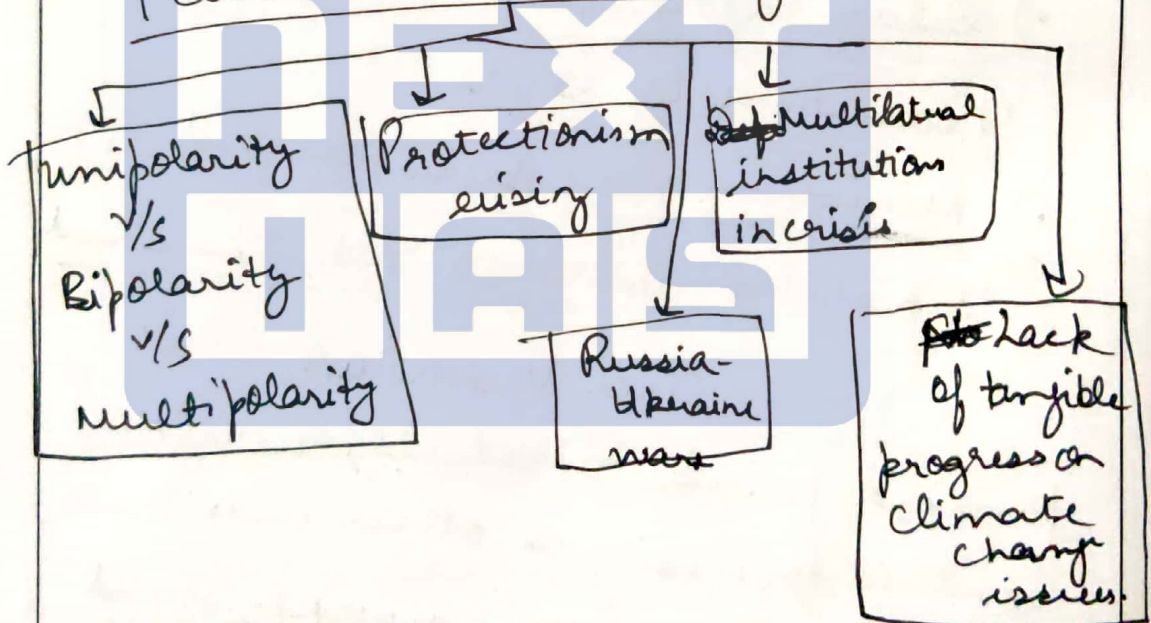 NEXT
IAS
Unipolarity
v/s
Bipolarity
v/s
Multipolarity
Protectionism
rising
Multilatual
institutions
in crisis
Russia-
Ukraine
war
Lack
of tangible
progress on
climate
change
issues.